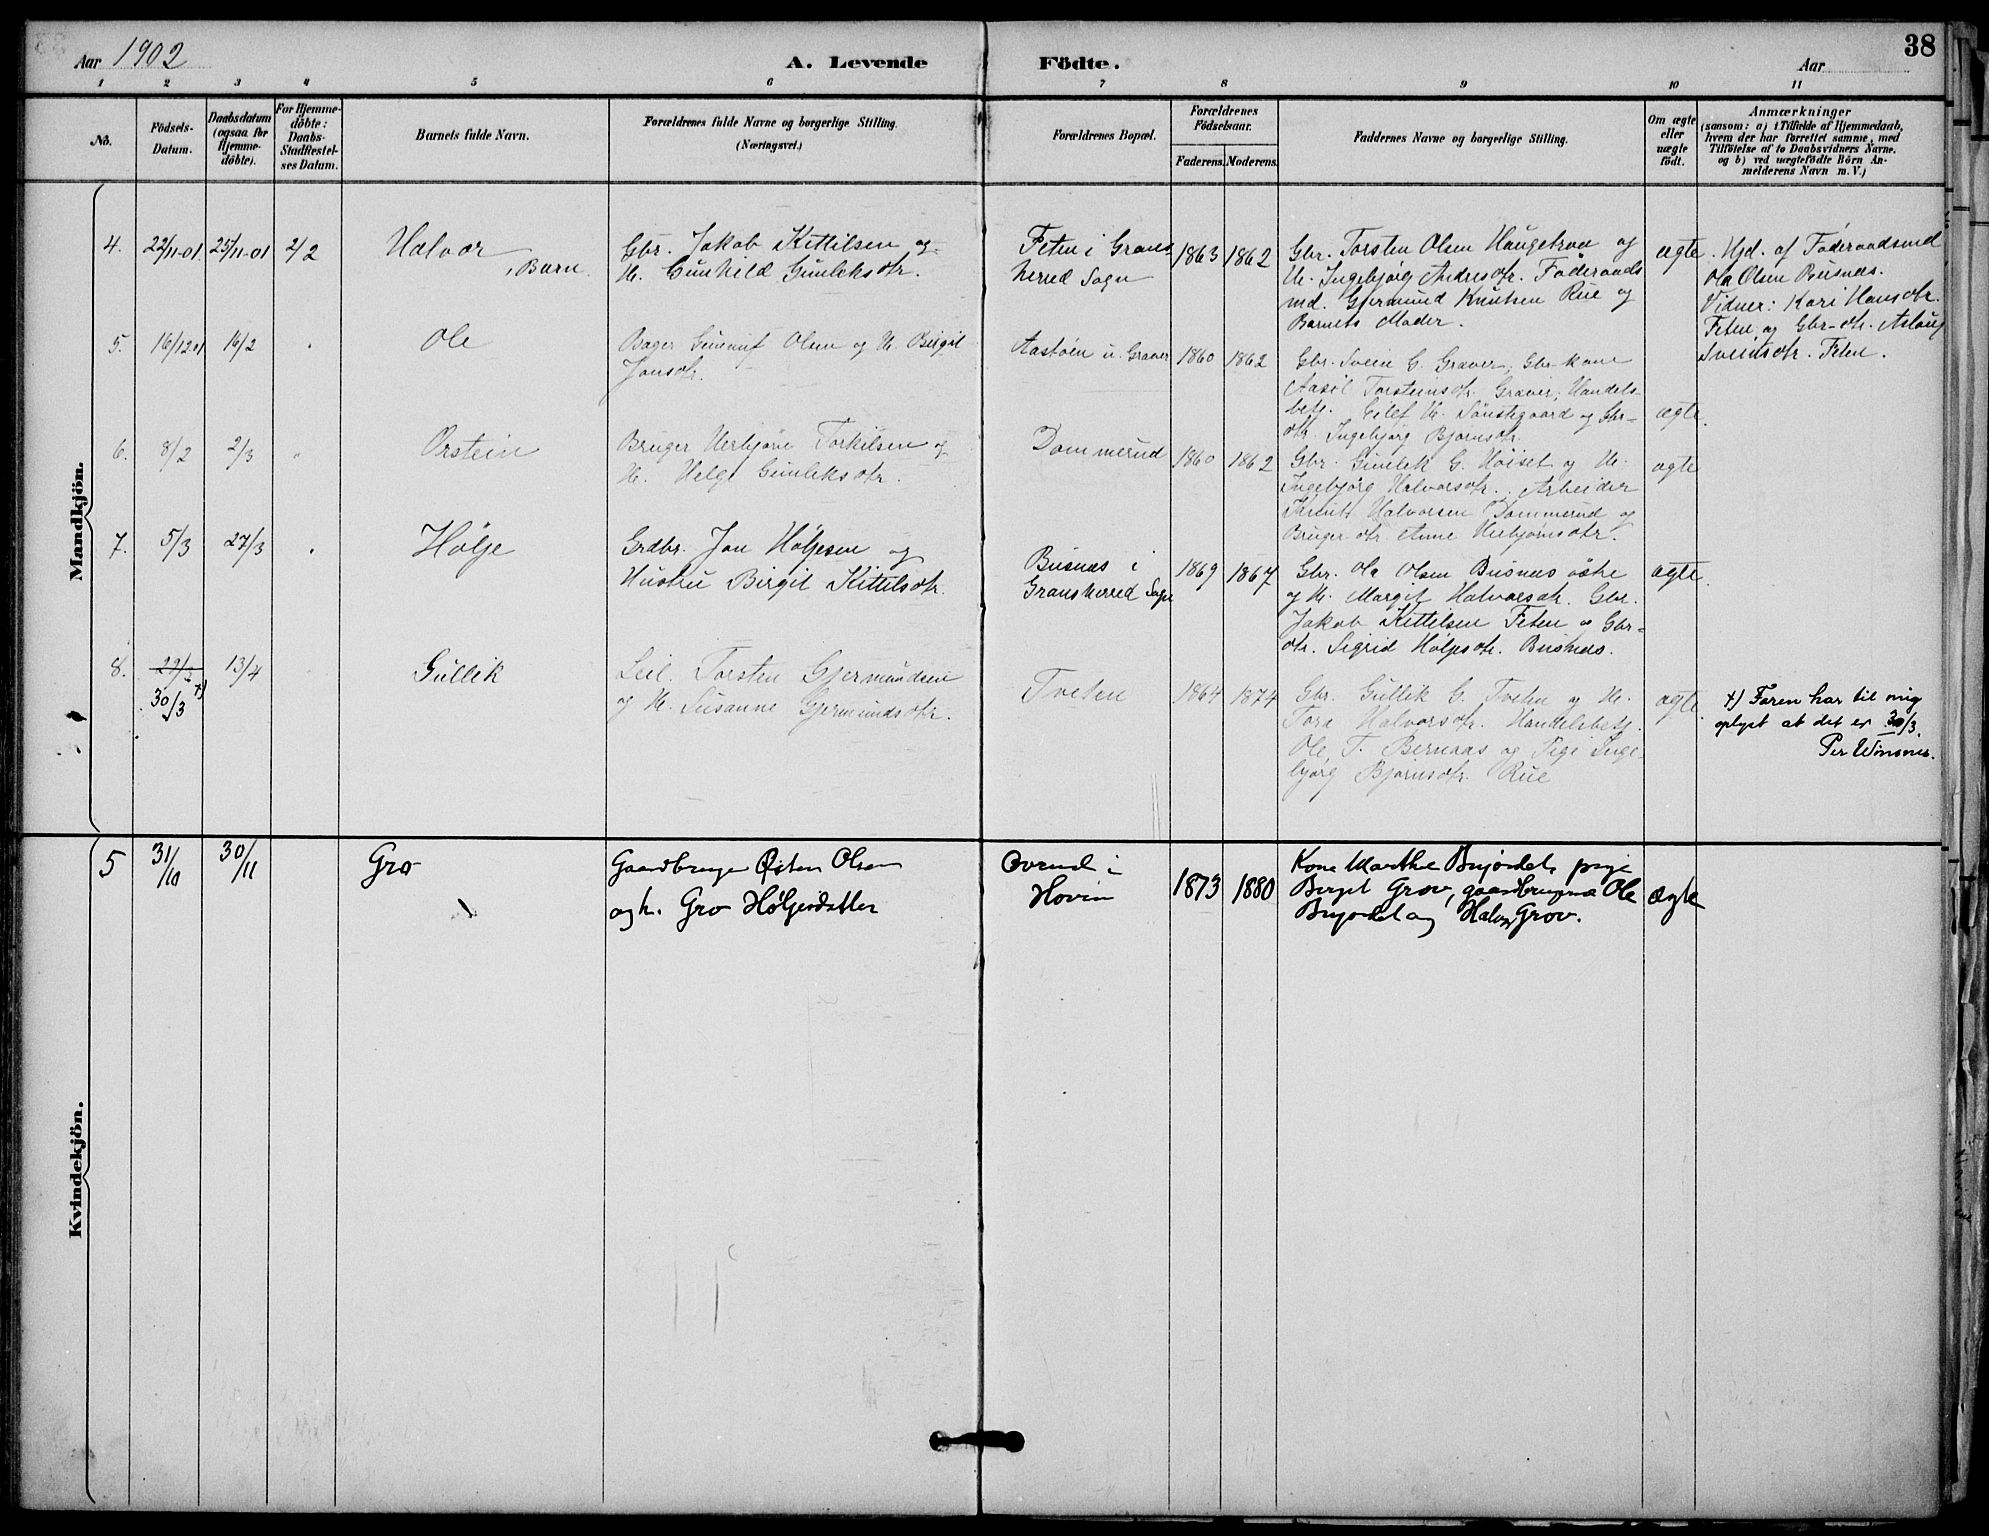 Aar 1902
A. Levende Födte.
Aar
38
1 2 3 4 5 6 7 8 9 10 11
No.
Födsels-Datum.
Daabsdatum (ogsaa for Hjemmedöbte).
For Hjemmedöbte: Daabs-Stadfestelses Datum.
Barnets fulde Navn.
Forældrenes fulde Navne og borgerlige Stilling. (Næringsvei.)
Forældrenes Bopæl.
Forældrenes Födselsaar.
Faderens. Moderens.
Faddernes Navne og borgerlige Stilling.
Om ægte eller uægte födt.
Anmærkninger
(saasom: a) i Tilfælde af Hjemmedaab,
hvem der har forrettet samme, med
Tilföielse af to Daabsvidners Navne,
og b) ved uægtefödte Börn An-
melderens Navn m. V.)
Mandkjön.
4. 22/11-01 25/11-01 2/2 Halvor
, Barn.
Gbr. Jakob Kittilsen og
H. Gunhild Gunleksdtr.
Feten i Grans-
herred Sogn
1863 1862
Gbr. Torsten Olsen Haugetraa og
H. Ingebjorg Andresdtr. Föderaads
md. Gjermund Knutsen Rue og
Barnets Moder.
ægte.
Hjd. af Föderaadsmd
Ola Olsen Busnæs.
Vidner: Kari Hansdtr.
Feten og Gbr-dtr. Aslaug
Sveinsdtr. Feten.
5. 16/12 01 16/2 " Ole
Bager Gunnuf Olsen og H. Birgit
Jonsdtr.
Aastöen u. Graver
1860 1862
Gbr. Svein G. Graver, Gbr-kone
Aasil Torsteinsdtr. Graver, Handels-
betj. Eilef H. Sönstegaard og Gbr-
dtr. Ingebjörg Bjornsdtr.
ægte.
6. 8/2 2/3 " Orstein
Bruger Herbjörn Torkilsen og
H. Helge Gunleksdtr.
Dommerud
1860 1862
Gbr. Gunlek G. Höiset og H.
Ingebjörg Halvorsdtr. Arbeider
Knut Halvorsen Dommerud og
Bruger dtr. Anne Herbjörnsdtr.
ægte
7. 5/3 27/3 " Hölje
Grdbr. Jon Höljesen og
Hustru Birgit Kittilsdtr.
Busnæs i
Gransherred Sogn
1869 1867
Gbr. Ola Olsen Busnæs östre
og H. Margit Halvorsdtr. Gbr.
Jakob Kittilsen Feten og Gbr-
dtr. Sigrid Höljesdtr. Busnæs.
ægte.
8. 29/3 13/4 Gullik
30/3 +)
Leil. Torsten Gjermundsen
og H. Susanne Gjermundsdtr.
Tveten
1864 1874
Gbr. Gullik G. Tveten og H.
Tore Halvorsdtr. Handelsbetj.
Ole T. Bernaas og Pige Inge-
björg Bjornsdtr. Rue
ægte.
+) Faren har til mig
oplyst at det er 30/3.
Per Winsnes.
Kvindekjön.
5 31/10 30/11 Gro
Gaardbruger Østen Olsen
og h. Gro Høljesdatter
Ovrud i
Hovin
1873 1880
Kone Marthe Bujordet, pige
Berget Grov, gaardbrugerne Ole
Bujordet og Halvor Grov.
ægte